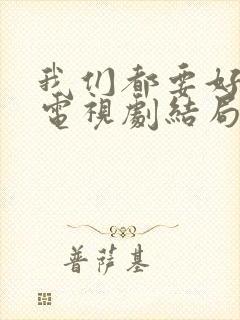 我们都要好
電視劇結局
普萨基